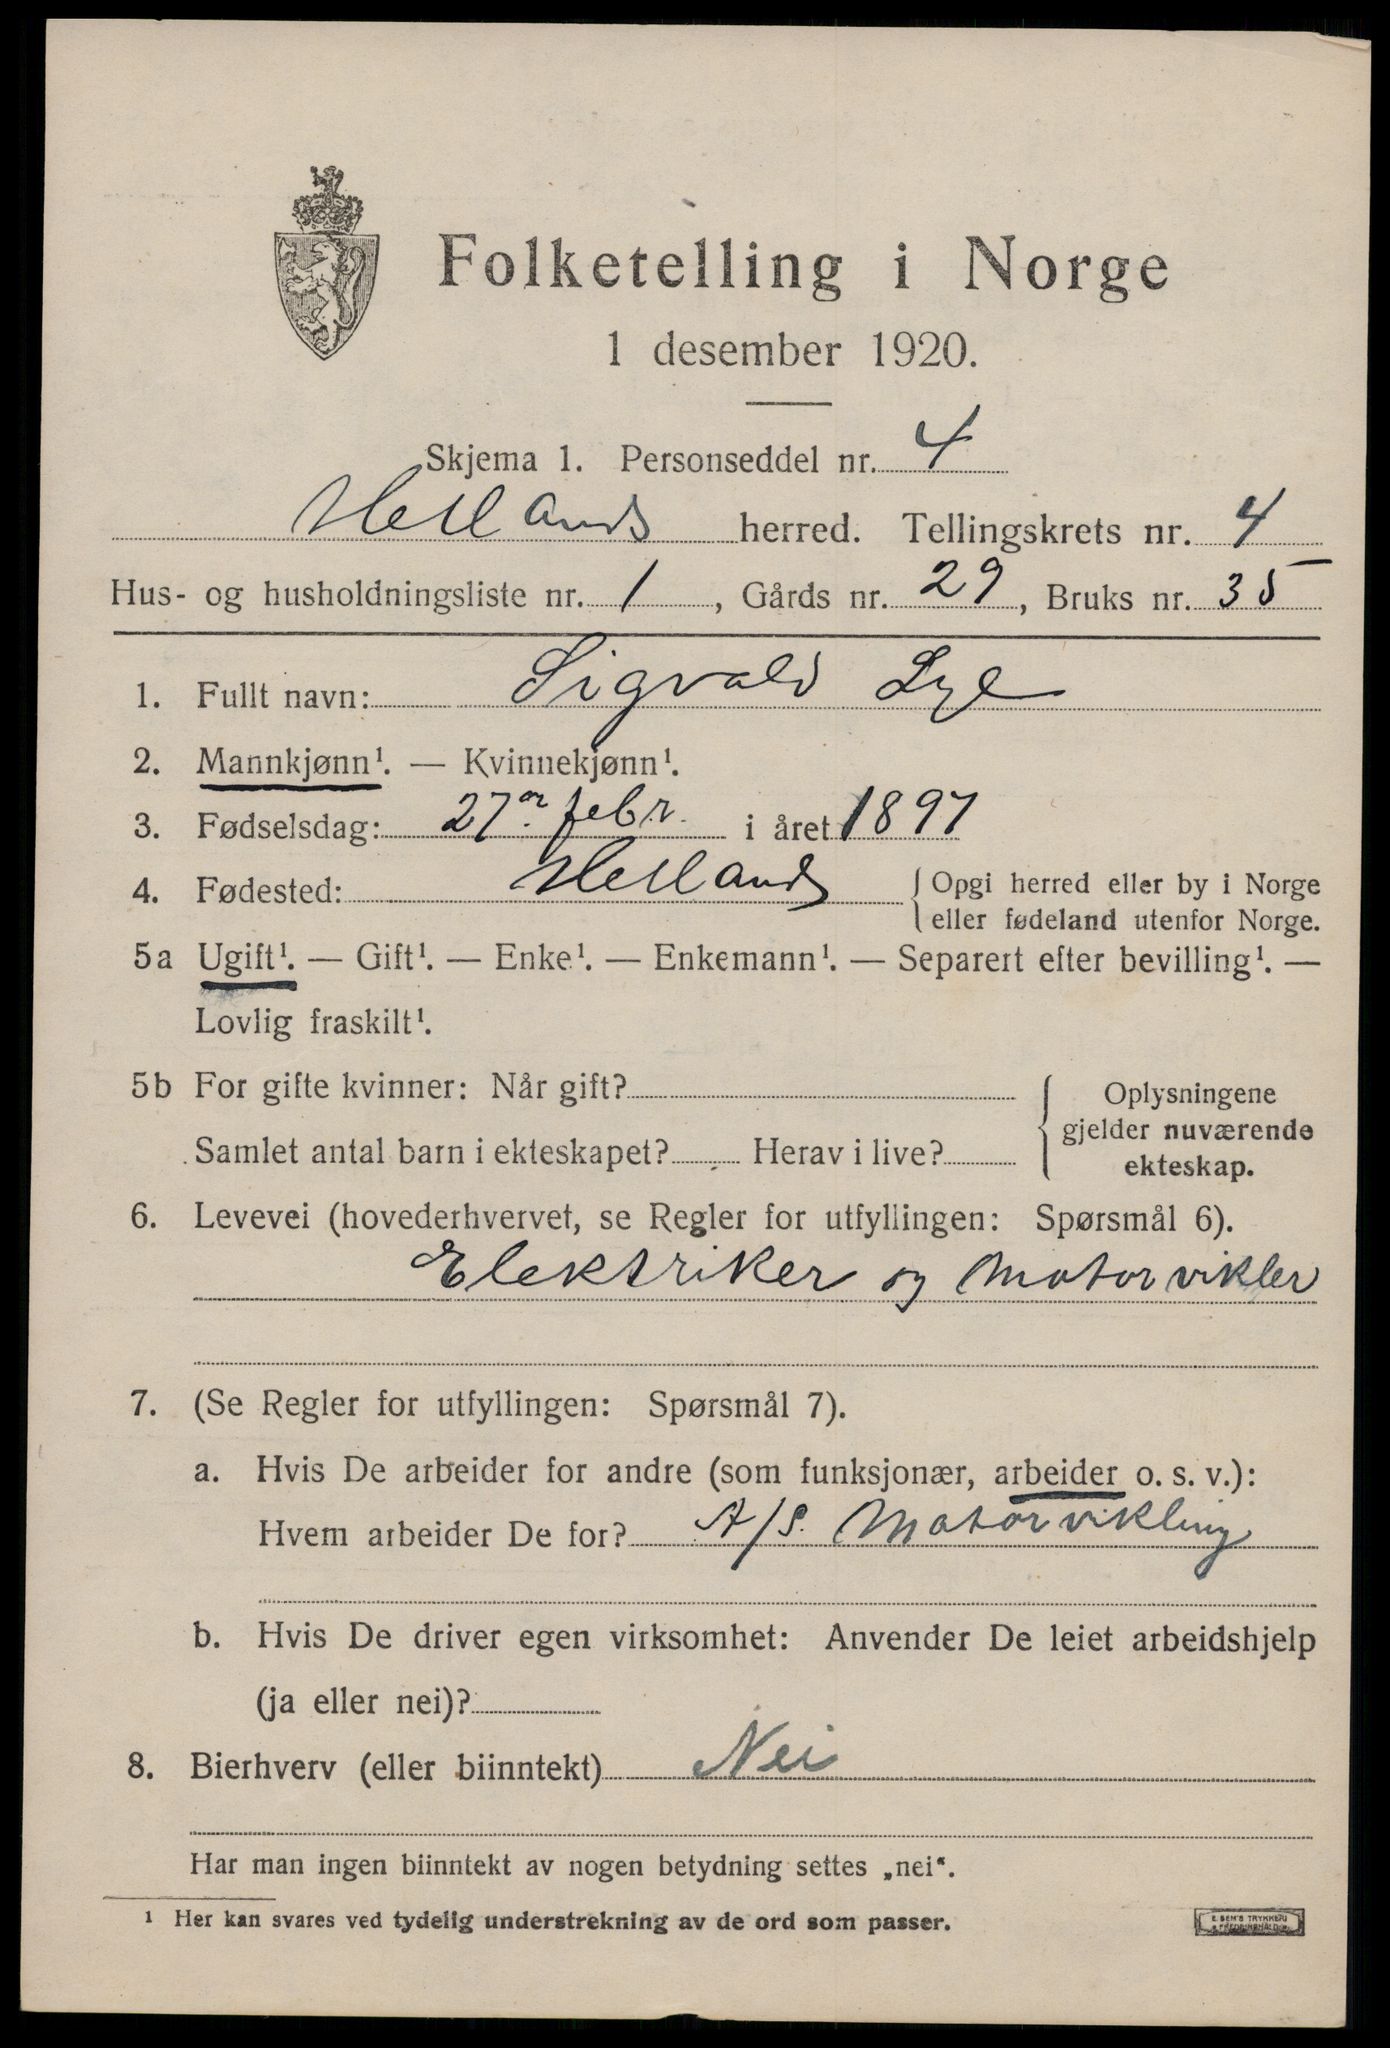 Folketelling i Norge
1 desember 1920.
Skjema 1. Personseddel nr. 4
Hetlands herred. Tellingskrets nr. 4
Hus- og husholdningsliste nr. 1, Gårds nr. 29, Bruks nr. 35
1. Fullt navn: Sigvald Lye
2. Mannkjønn¹. — Kvinnekjønn¹.
3. Fødselsdag: 27de febr. i året 1897
4. Fødested: Hetlands { Opgi herred eller by i Norge
eller fødeland utenfor Norge.
5a Ugift¹. — Gift¹. — Enke¹. — Enkemann¹. — Separert efter bevilling¹. —
Lovlig fraskilt¹.
5b For gifte kvinner: Når gift?
Samlet antal barn i ekteskapet? Herav i live?
{ Oplysningene
gjelder nuværende
ekteskap.
6. Levevei (hovederhvervet, se Regler for utfyllingen: Spørsmål 6).
Elektriker og Motorvikler
7. (Se Regler for utfyllingen: Spørsmål 7).
a. Hvis De arbeider for andre (som funksjonær, arbeider o. s. v.):
Hvem arbeider De for? A/S. Motorvikling
b. Hvis De driver egen virksomhet: Anvender De leiet arbeidshjelp
(ja eller nei)?
8. Bierhverv (eller biinntekt) Nei
Har man ingen biinntekt av nogen betydning settes „nei".
¹ Her kan svares ved tydelig understrekning av de ord som passer.